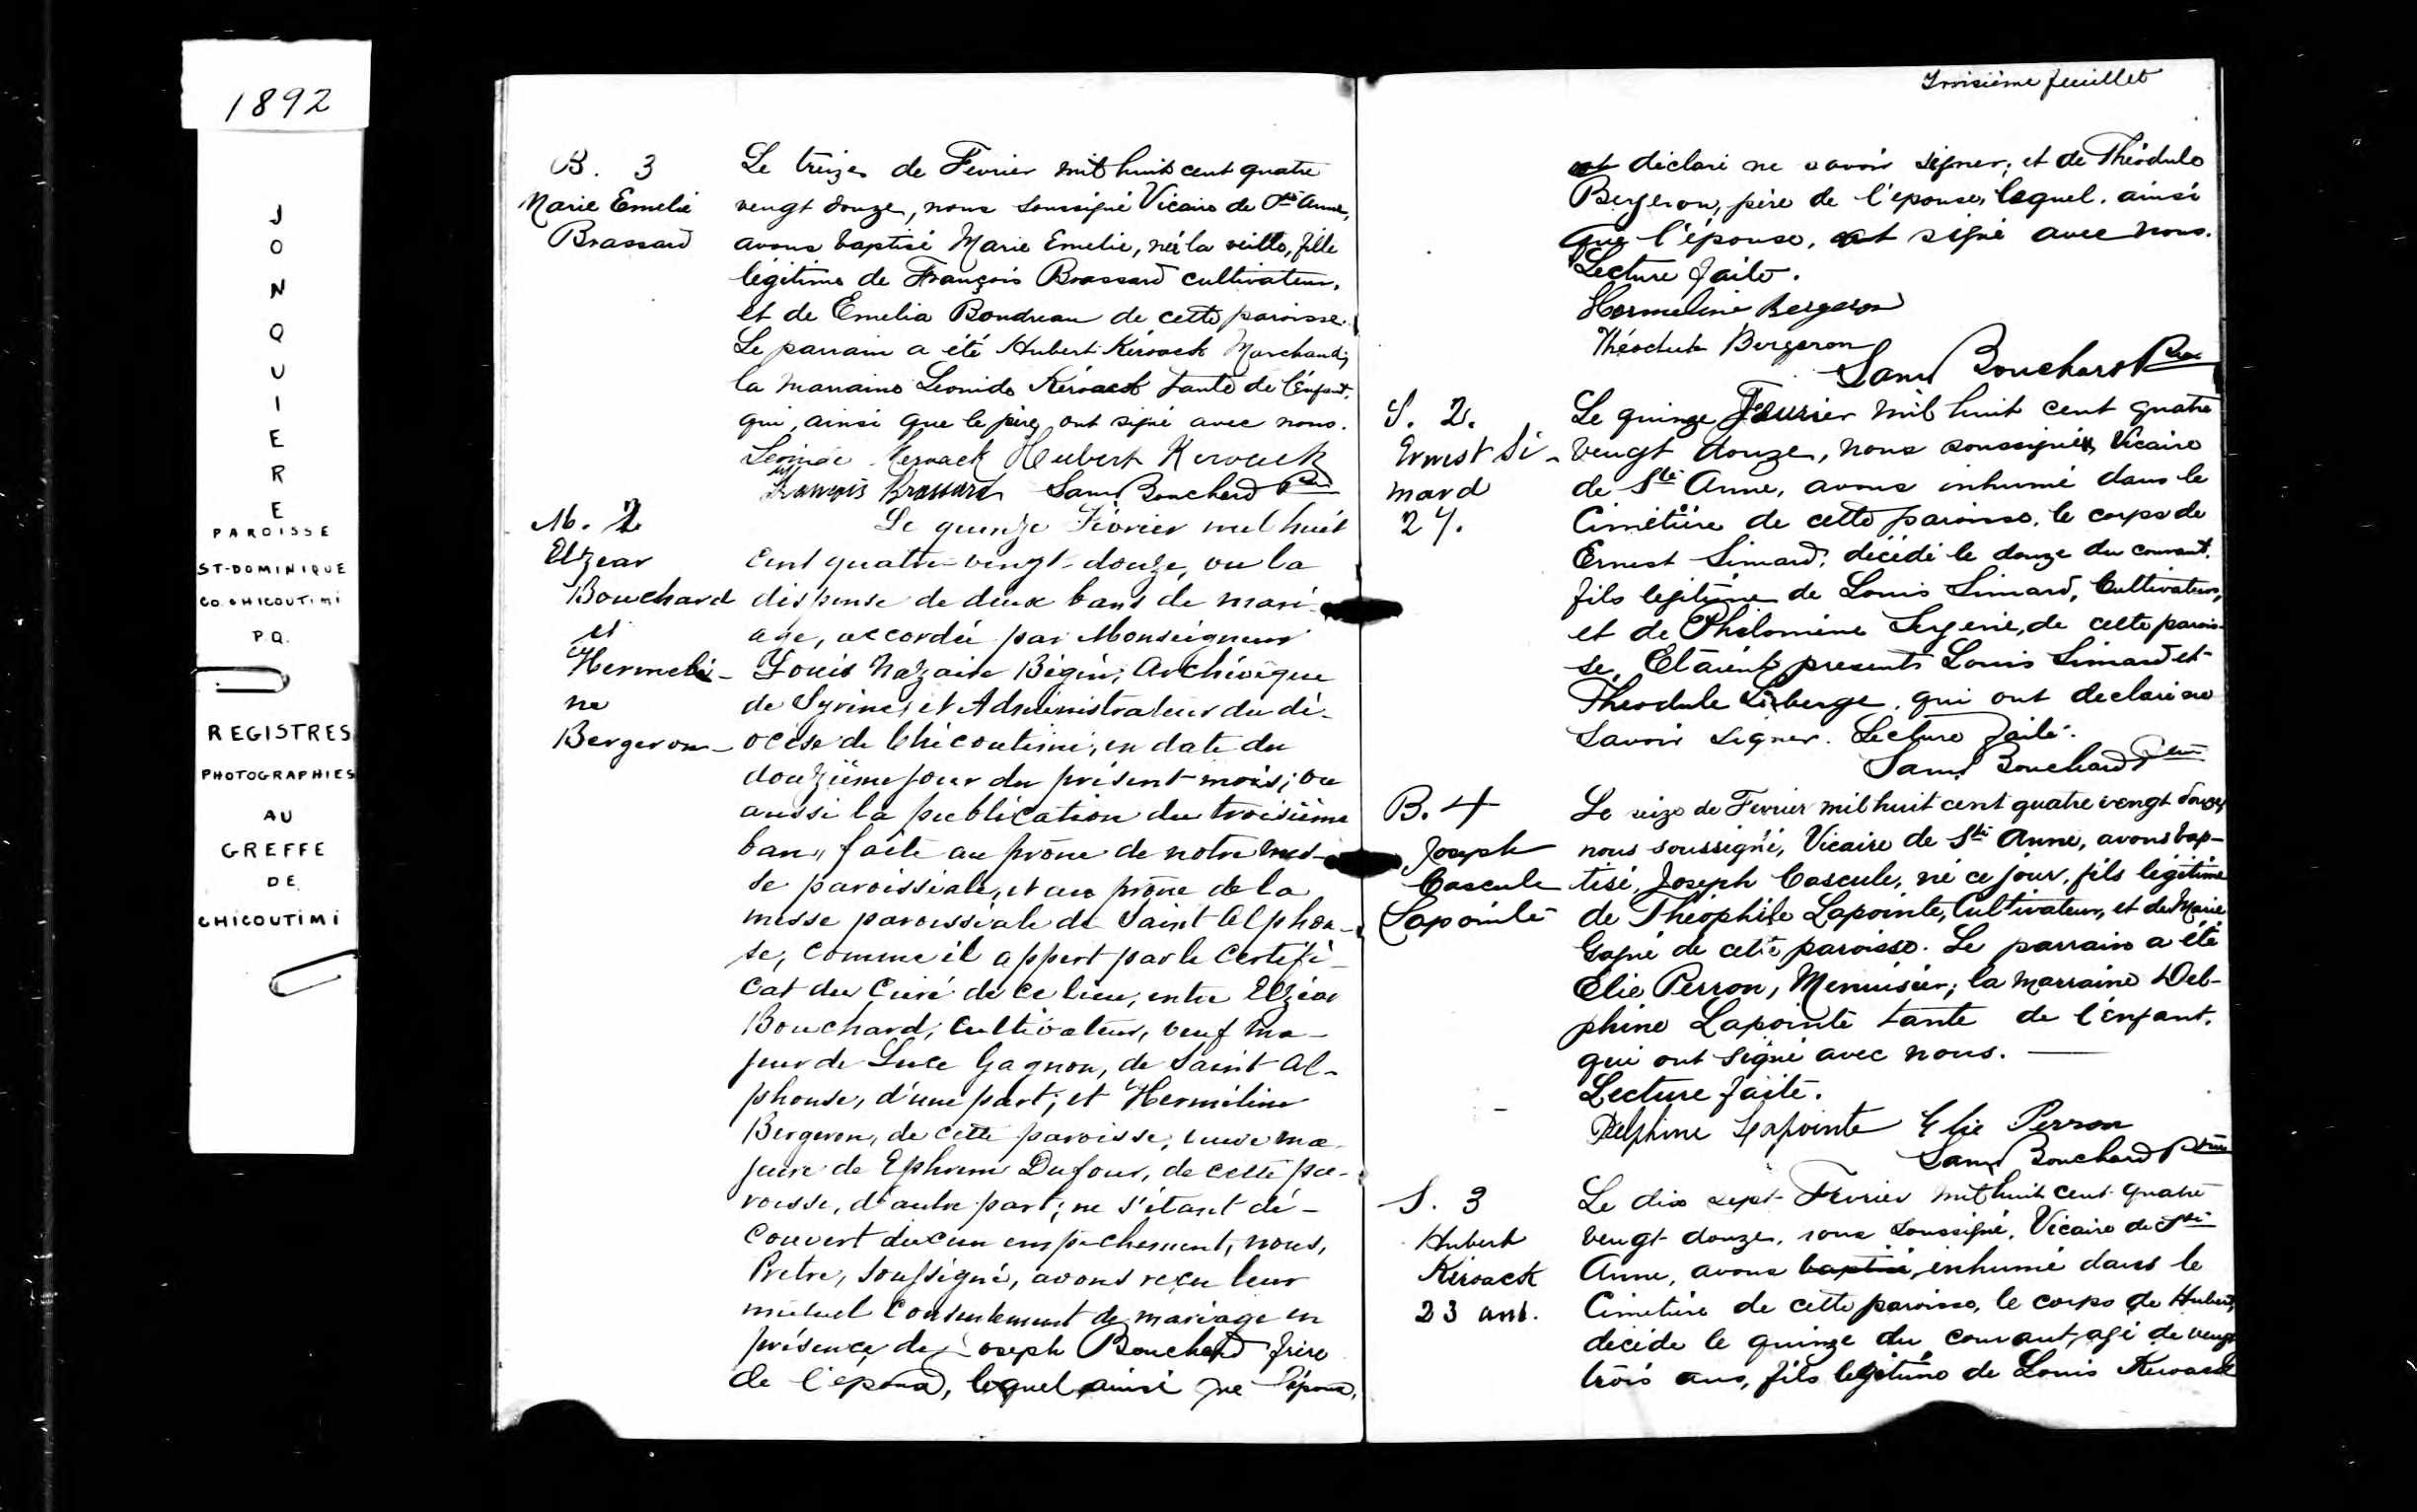 1892
JONQUIERE
PAROISSE
ST-DOMINIQUE
CO. CHICOUTIMI
P.Q.
REGISTRES
PHOTOGRAPHIES
AU
GREFFE
DE
CHICOUTIMI
B. 3
Marie Emelie
Brassard
Le treize de Fevrier mil huit cent quatre
vengt douze, nous soussigné Vicaire de Ste Anne,
avons baptisé Marie Emelie, née la veille, fille
légitime de François Brassard cultivateur,
et de Emelia Boudreau de cette paroisse.
Le parrain a été Hubert Kéroack Marchand;
la marraine Leonide Kéroack tante de l'enfant,
qui, ainsi que le père, ont signé avec nous.
Leonide Keroack Hubert Kerouack
François Brassard Saml Bouchard Ptre
M. 2
Elzear
Bouchard
et
Hermeli-
ne
Bergeron
Le quinze Février mil huit
cent quatre-vingt-douze, vu la
dispense de deux bans de mari-
age, accordée par Monseigneur
Louis Nazaire Bégin, Archévêque
de Cyrène, et Administrateur du di-
ocèse de Chicoutimi, en date du
douzième jour du présent mois; vu
aussi la publication du troisième
ban, faite au prône de notre mes-
se paroissiale, et au prône de la
messe paroissiale de Saint Alphon-
se, comme il appert par le certifi-
cat du Curé de ce lieu, entre Elzéar
Bouchard, Cultivateur, veuf ma-
jeur de Luce Gagnon, de Saint Al-
phonse, d'une part; et Herméline
Bergeron, de cette paroisse, veuve ma-
jeure de Ephrem Dufour, de cette pa-
roisse, d'autre part; ne s'étant dé-
couvert aucun empêchement, nous,
Pretre, soussigné, avons reçu leur
mutuel consentement de mariage en
présence de Joseph Bouchard frère
de l'époux, lequel ainsi que l'époux,
Troisième feuillet
ont déclaré ne savoir signer, et de Théodule
Bergeron, père de l'épouse, lequel, ainsi
que l'épouse, ont signé avec nous.
Lecture faite.
Hermeline Bergeron
Théodule Bergeron
Saml Bouchard Ptre
S. 2.
Ernest Si-
mard
Le quinze Fevrier mil huit cent quatre
vengt douze, nous soussigné, Vicaire
de Ste Anne, avons inhumé dans le
Cimétière de cette paroisse, le corps de
Ernest Simard, décédé le douze du courant,
fils legitime de Louis Simard, Cultivateur,
et de Philomène Sergerie, de cette parois-
se. Etaient presents Louis Simard et
Theodule Leberge, qui ont declaré ne
savoir signer. Lecture faite.
Saml Bouchard Ptre
B. 4
Joseph
Cascule
Lapointe
Le seize de Fevrier mil huit cent quatre vengt douze,
nous soussigné, Vicaire de Ste Anne, avons bap-
tisé, Joseph Cascule, né ce jour, fils légitime
de Théophile Lapointe, Cultivateur, et de Marie
Gagné de cette paroisse. Le parrain a été
Elie Perron, Menuisier; la marraine Del-
phine Lapointe tante de l'enfant,
qui ont signé avec nous.
Lecture faite.
Delphine Lapointe Elie Perron
Saml Bouchard Ptre
S. 3
Hubert
Kéroack
23 ans.
Le dix sept Fevrier mil huit cent quatre
vengt douze, nous soussigné, Vicaire de Ste
Anne, avons baptisé, inhumé dans le
Cimetière de cette paroisse, le corps de Hubert,
décédé le quinze du courant, agé de vengt
trois ans, fils legitime de Louis Kéroack